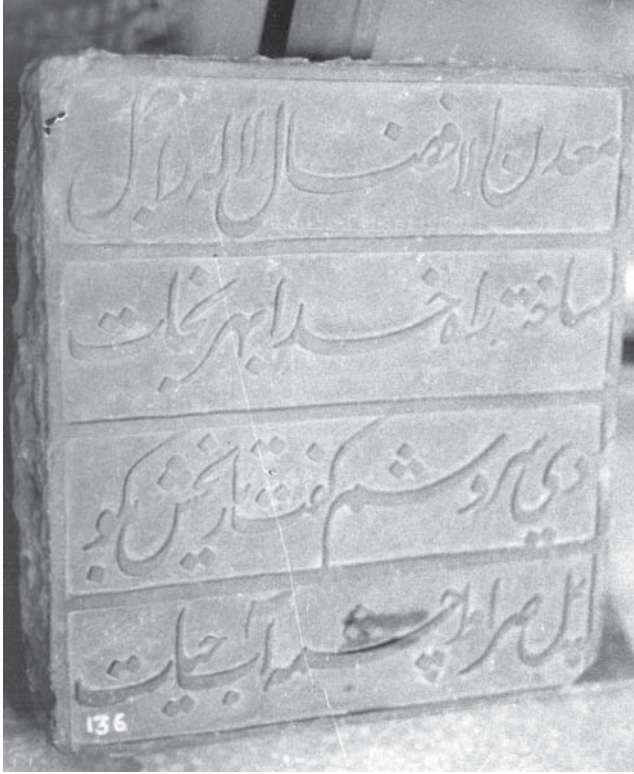 معدن افضال لاله رابل
ساخته براه خدا بهر نجات
دی سروشم گفت تاریخش بگو
پل صراط چشمه آب حیات
136